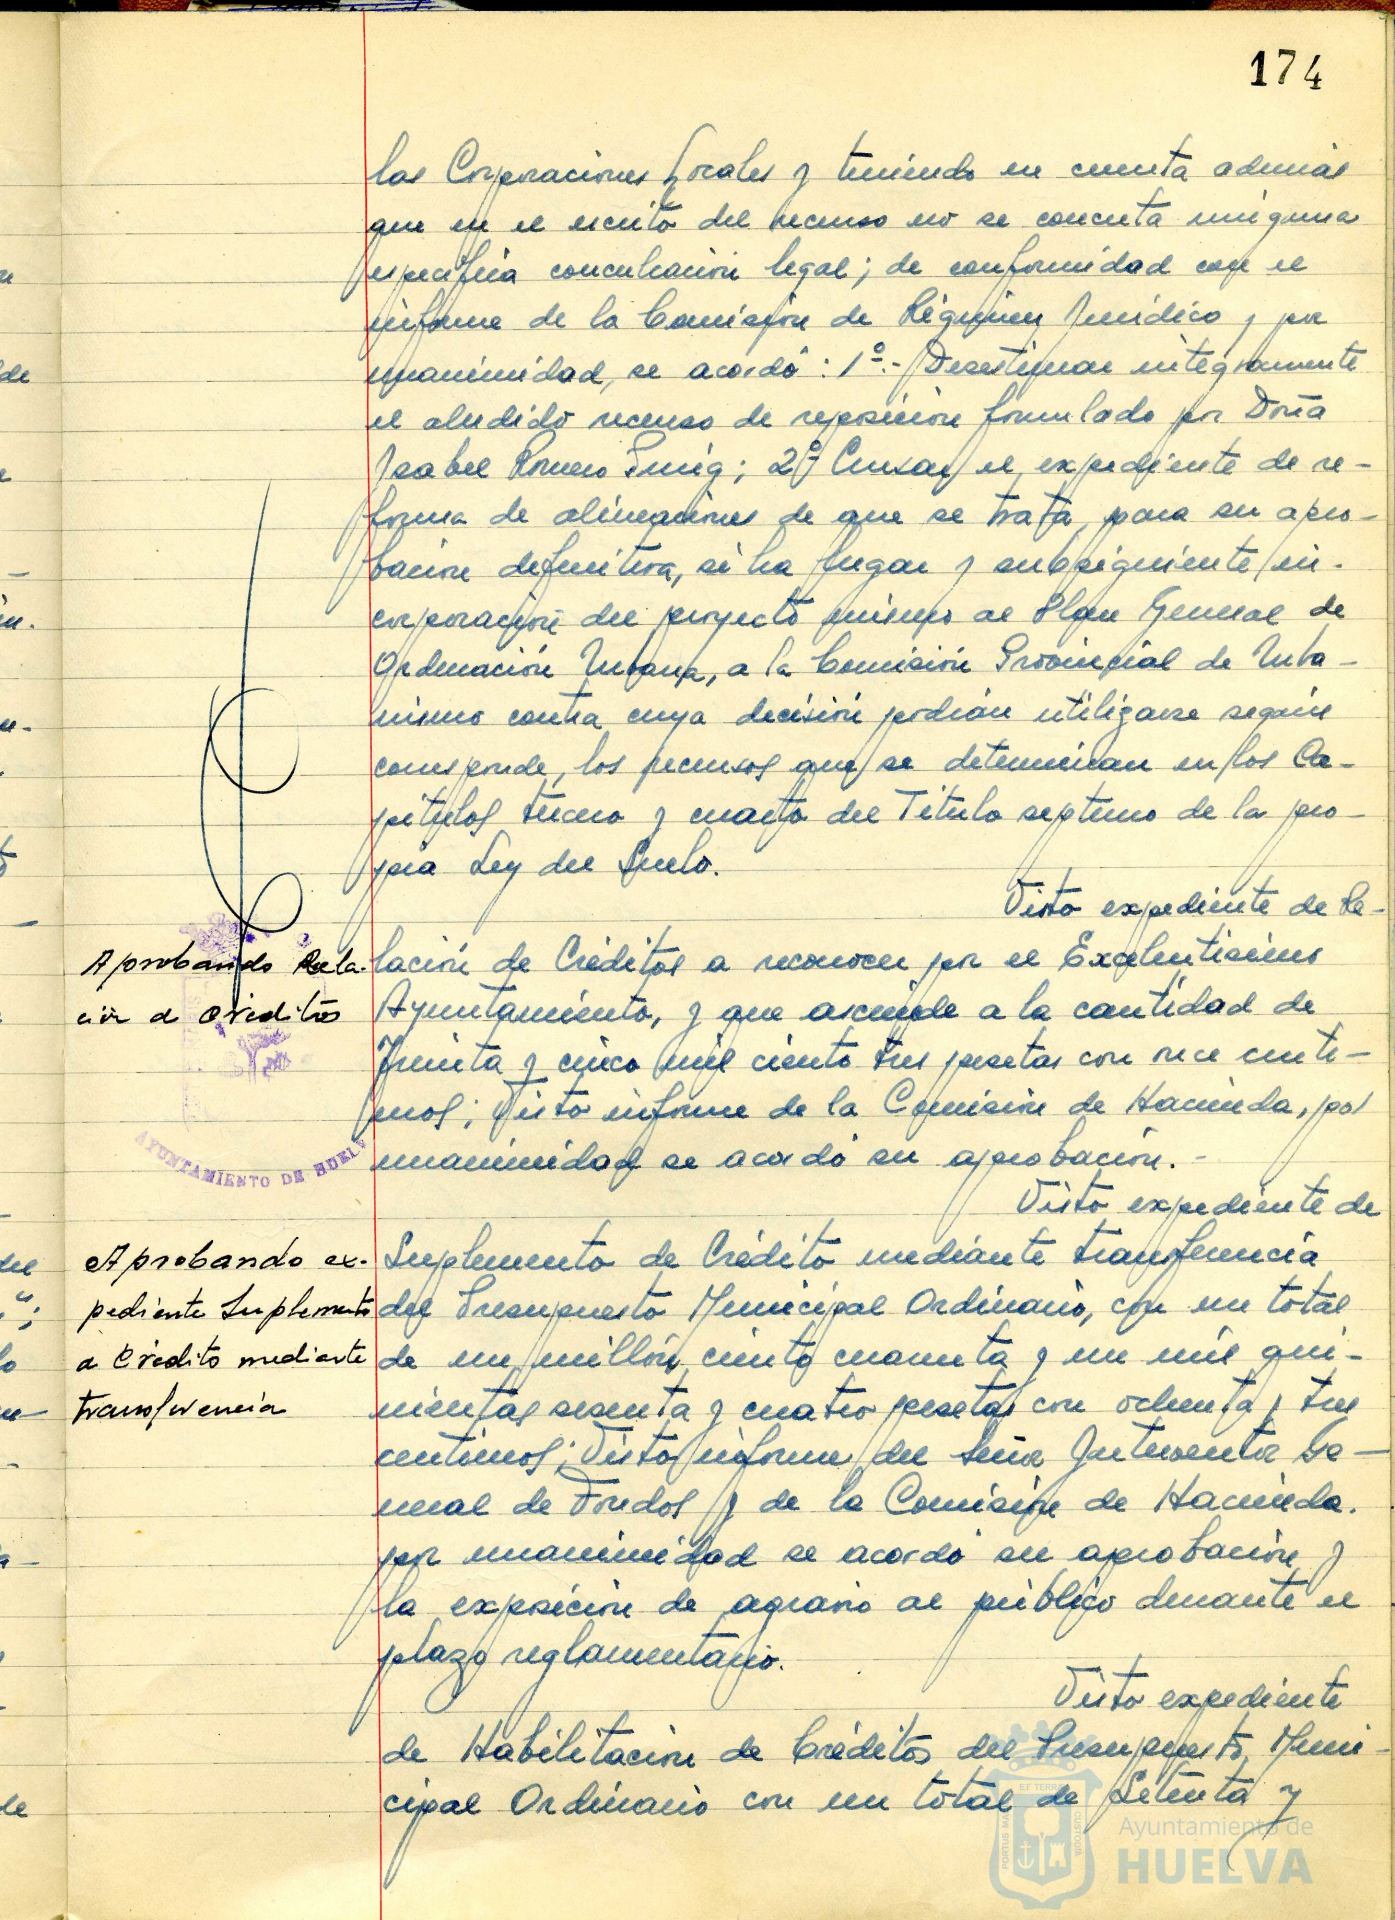 174
las Corporaciones Locales y teniendo en cuenta además
que en el escrito del recurso no se concreta ninguna
específica conculcación legal; de conformidad con el
informe de la Comisión de Régimen Jurídico y por
unanimidad, se acordó: 1º.- Desestimar integramente
el aludido recurso de reposición formulado por Doña
Isabel Romero Puig; 2º Cursar el expediente de re-
forma de alineaciones de que se trata, para su apro-
bación definitiva, si ha lugar y subsiguiente in-
corporación del proyecto mismo al Plan General de
Ordenación Urbana, a la Comisión Provincial de Urba-
nismo contra cuya decisión podrán utilizarse según
corresponde, los recursos que se determinan en los Ca-
pítulos tercero y cuarto del Título septimo de la pro-
pia Ley del Suelo.
Visto expediente de Re-
Aprobando Rela-
ción de Créditos
lación de Créditos a reconocer por el Excelentísimo
Ayuntamiento, y que asciende a la cantidad de
Treinta y cinco mil ciento tres pesetas con once cénti-
mos; Visto informe de la Comisión de Hacienda, por
unanimidad se acordó su aprobación.-
AYUNTAMIENTO DE HUELVA
Visto expediente de
Aprobando ex-
pediente Suplemento
de Crédito mediante
transferencia
Suplemento de Crédito mediante transferencia
del Presupuesto Municipal Ordinario, con un total
de un millón ciento cuarenta y un mil qui-
nientas sesenta y cuatro pesetas con ochenta y tres
centimos; Visto informe del Señor Interventor Ge-
neral de Fondos y de la Comisión de Hacienda.
por unanimidad se acordó su aprobación y
la exposición de agravio al público durante el
plazo reglamentario.
Visto expediente
de Habilitación de Créditos del Presupuesto Muni-
cipal Ordinario con un total de Setenta y
Ayuntamiento de
HUELVA